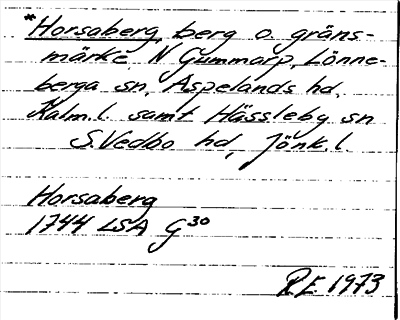 *Horsaberg, berg o. gräns-
märke N Gummarp, Lönne-
berga sn, Aspelands hd,
Kalm.l. samt Hässleby sn
S.Vedbo hd, Jönk.l.
Horsaberg
1744 LSA G30
RE 1973